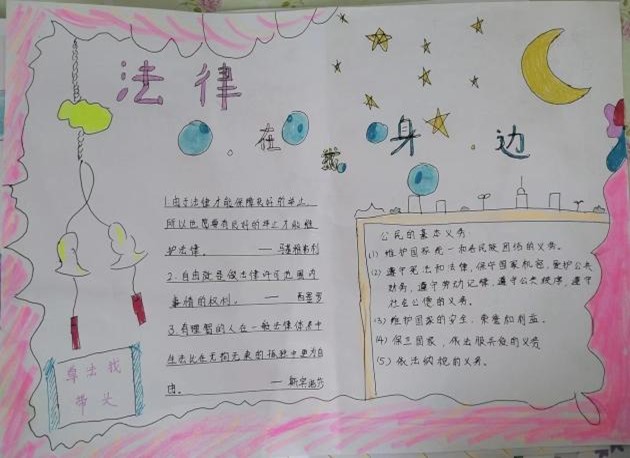 法律
在我身边
1.由于法律才能保障良好的举止,
所以也要有良好的举止才能维
护法律。 —— 马基雅弗利
2.自由就是做法律许可范围内
事情的权利。 —— 西塞罗
3.有理智的人在一般法律体系中
生活比在无拘无束的孤独中更为自
由。 —— 斯宾诺莎
尊法我
带头
公民的基本义务:
(1) 维护国家统一和各民族团结的义务。
(2) 遵守宪法和法律,保守国家机密,爱护公共
财务,遵守劳动纪律,遵守公共秩序,遵守
社会公德的义务。
(3) 维护国家的安全、荣誉和利益。
(4) 保卫国家,依法服兵役的义务
(5) 依法纳税的义务。